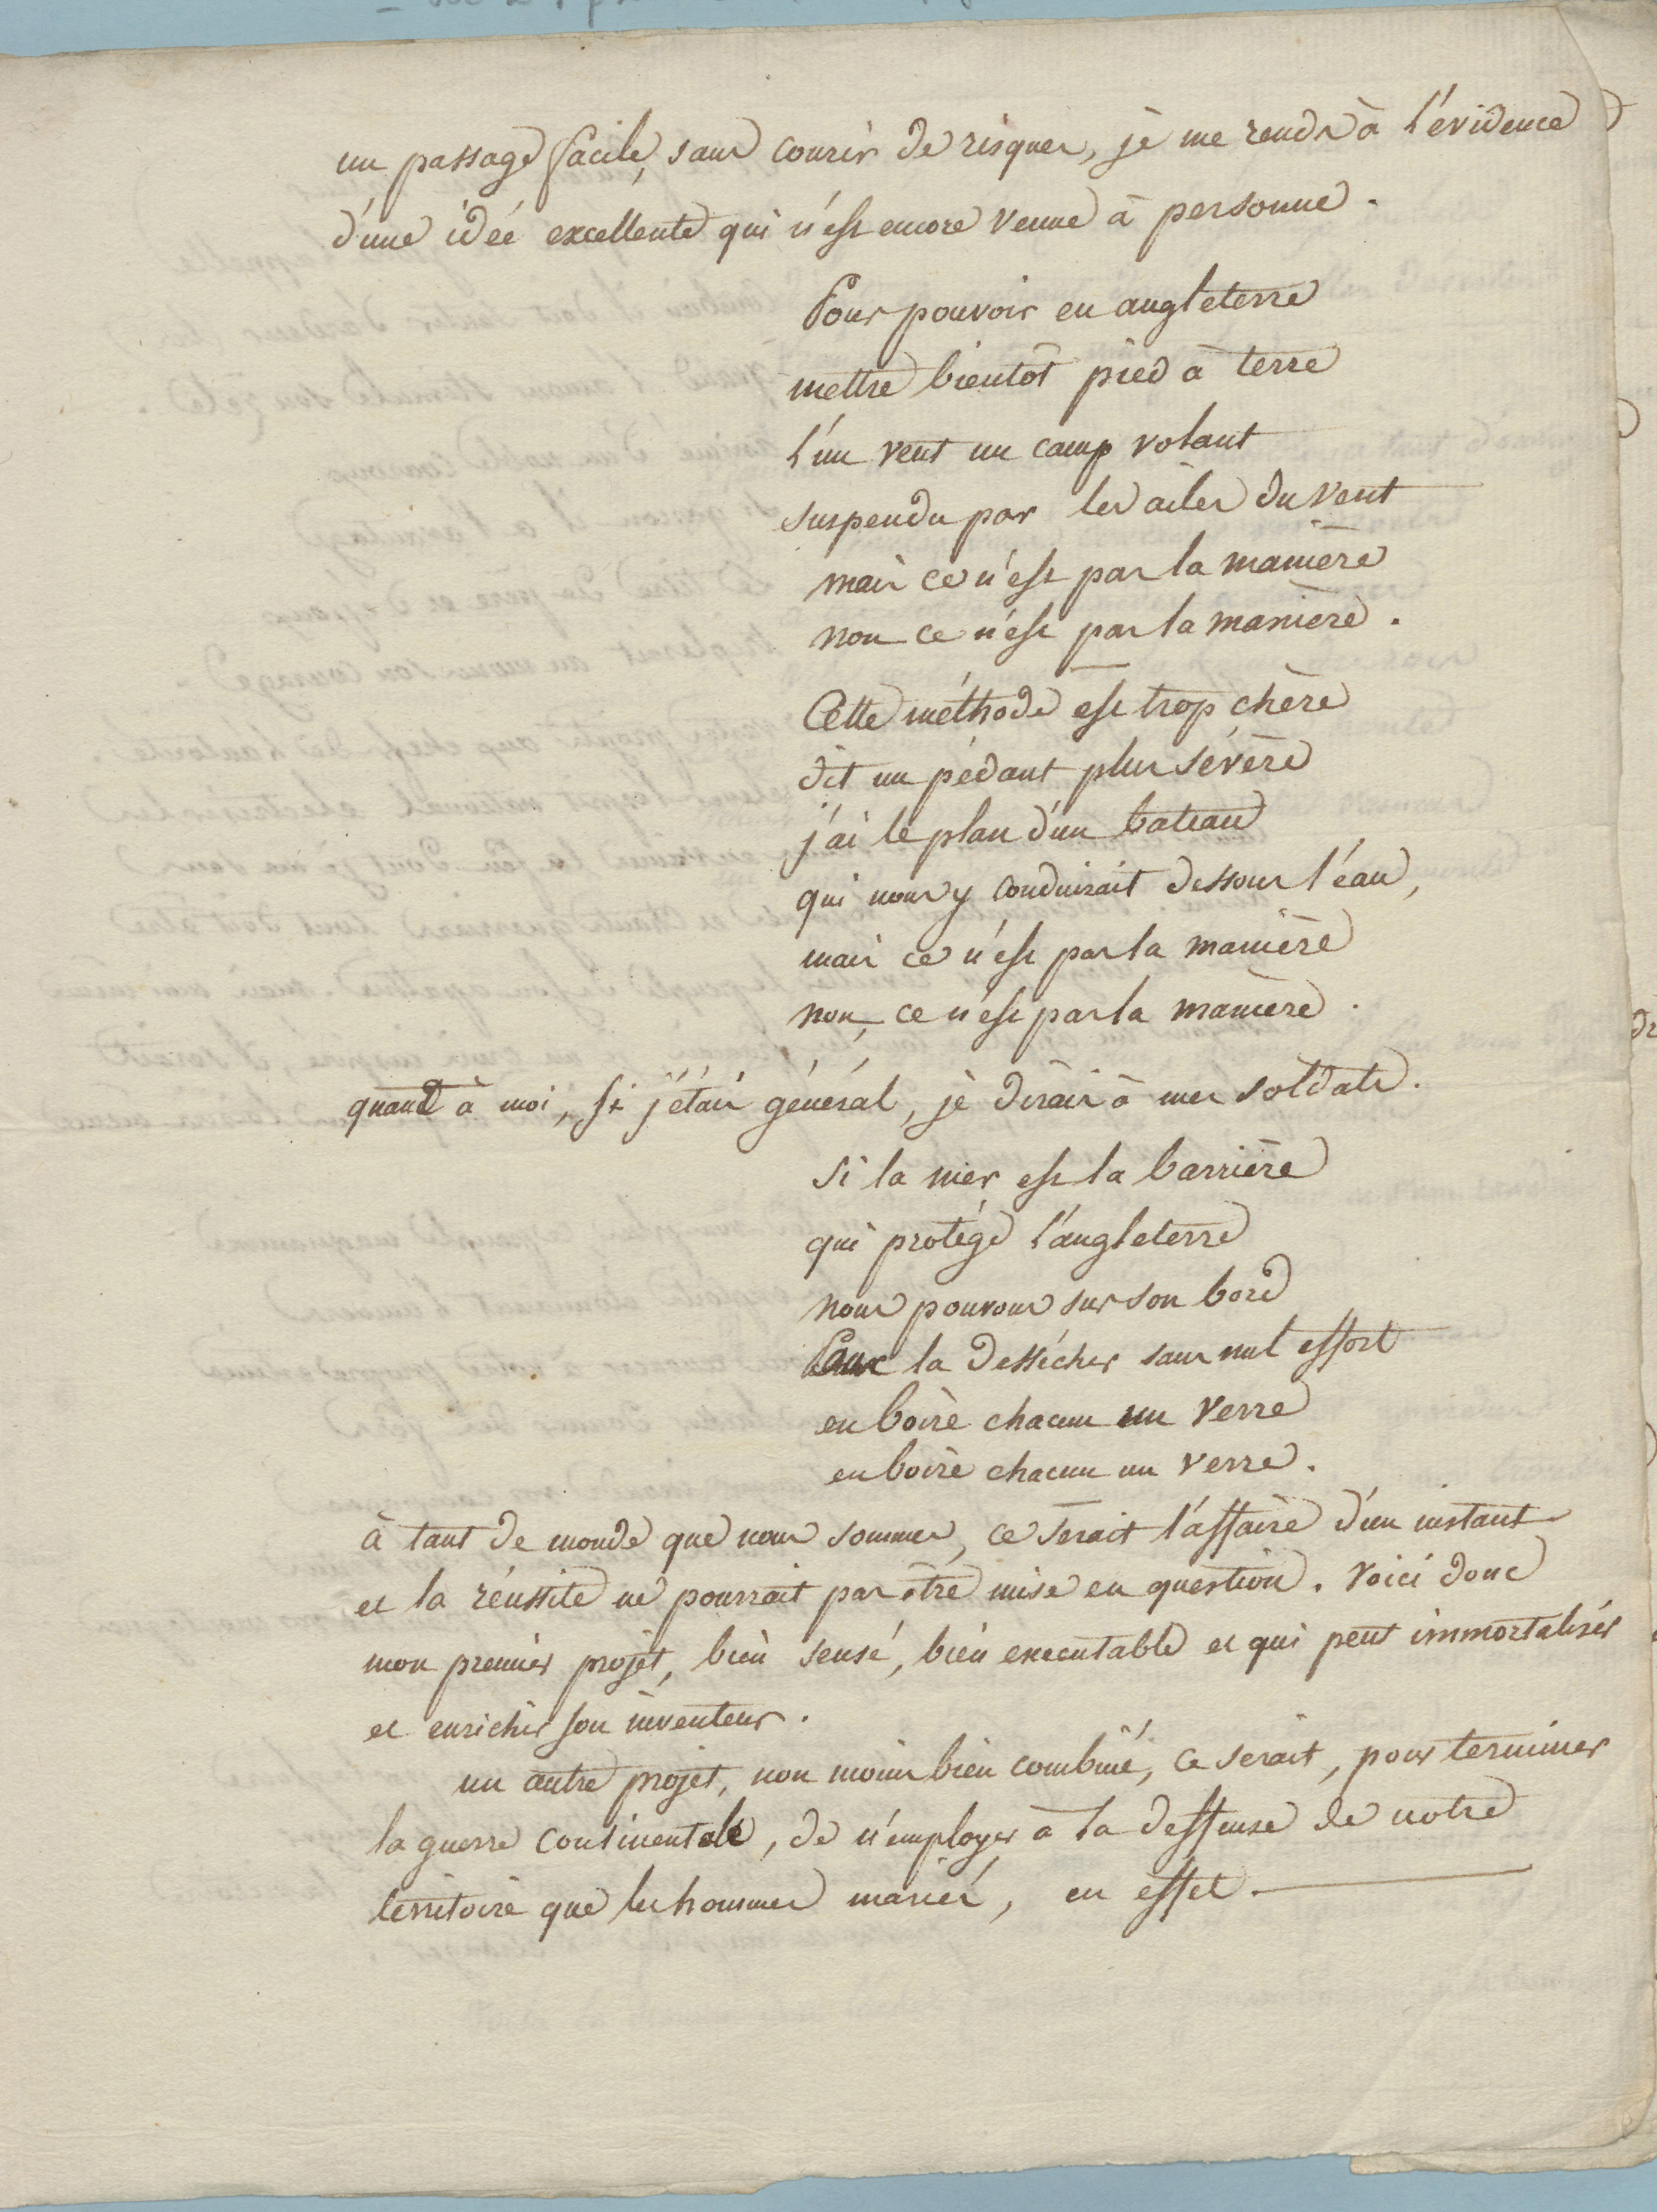 un passage facile, sans courir de risques, je me rends à l'évidence
d'une idée excellente qui n'est encore venue à personne.
Pour pouvoir en angleterre
mettre bientôt pied à terre
l'un veut un camp volant
suspendu par les ailes du vent
mais ce n'est pas la manière
non ce n'est pas la manière.
Cette méthode est trop chère
dit un pédant plus sévère
j'ai le plan d'un bateau
qui nous y conduirait dessous l'éau,
mais ce n'est pas la manière
non, ce n'est pas la manière.
quand à moi, si j'étais général, je dirais à mes soldats.
Si la mer est la barrière
qui protége l'angleterre
nous pouvons sur son bord
Pour la dessécher sans nul effort
en boire chacun un verre
en boire chacun un verre.
à tant de monde que nous sommes, ce serait l'affaire d'un instant
et la réussite ne pourrait pas être mise en question. Voici donc
mon premier projet, bien sensé, bien executable et qui peut immortaliser
et enrichir son inventeur.
un autre projet, non moins bien combiné, ce serait, pour terminer
la guerre continentale, de n'employer à la deffense de notre
territoire que les hommes mariés, en effet.